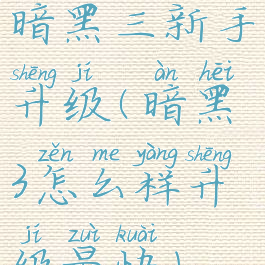 暗黑三新手
shēng jí àn hēi
升级(暗黑
zěn me yàng shēng
3怎么样升
jí zuì kuài
级最快)